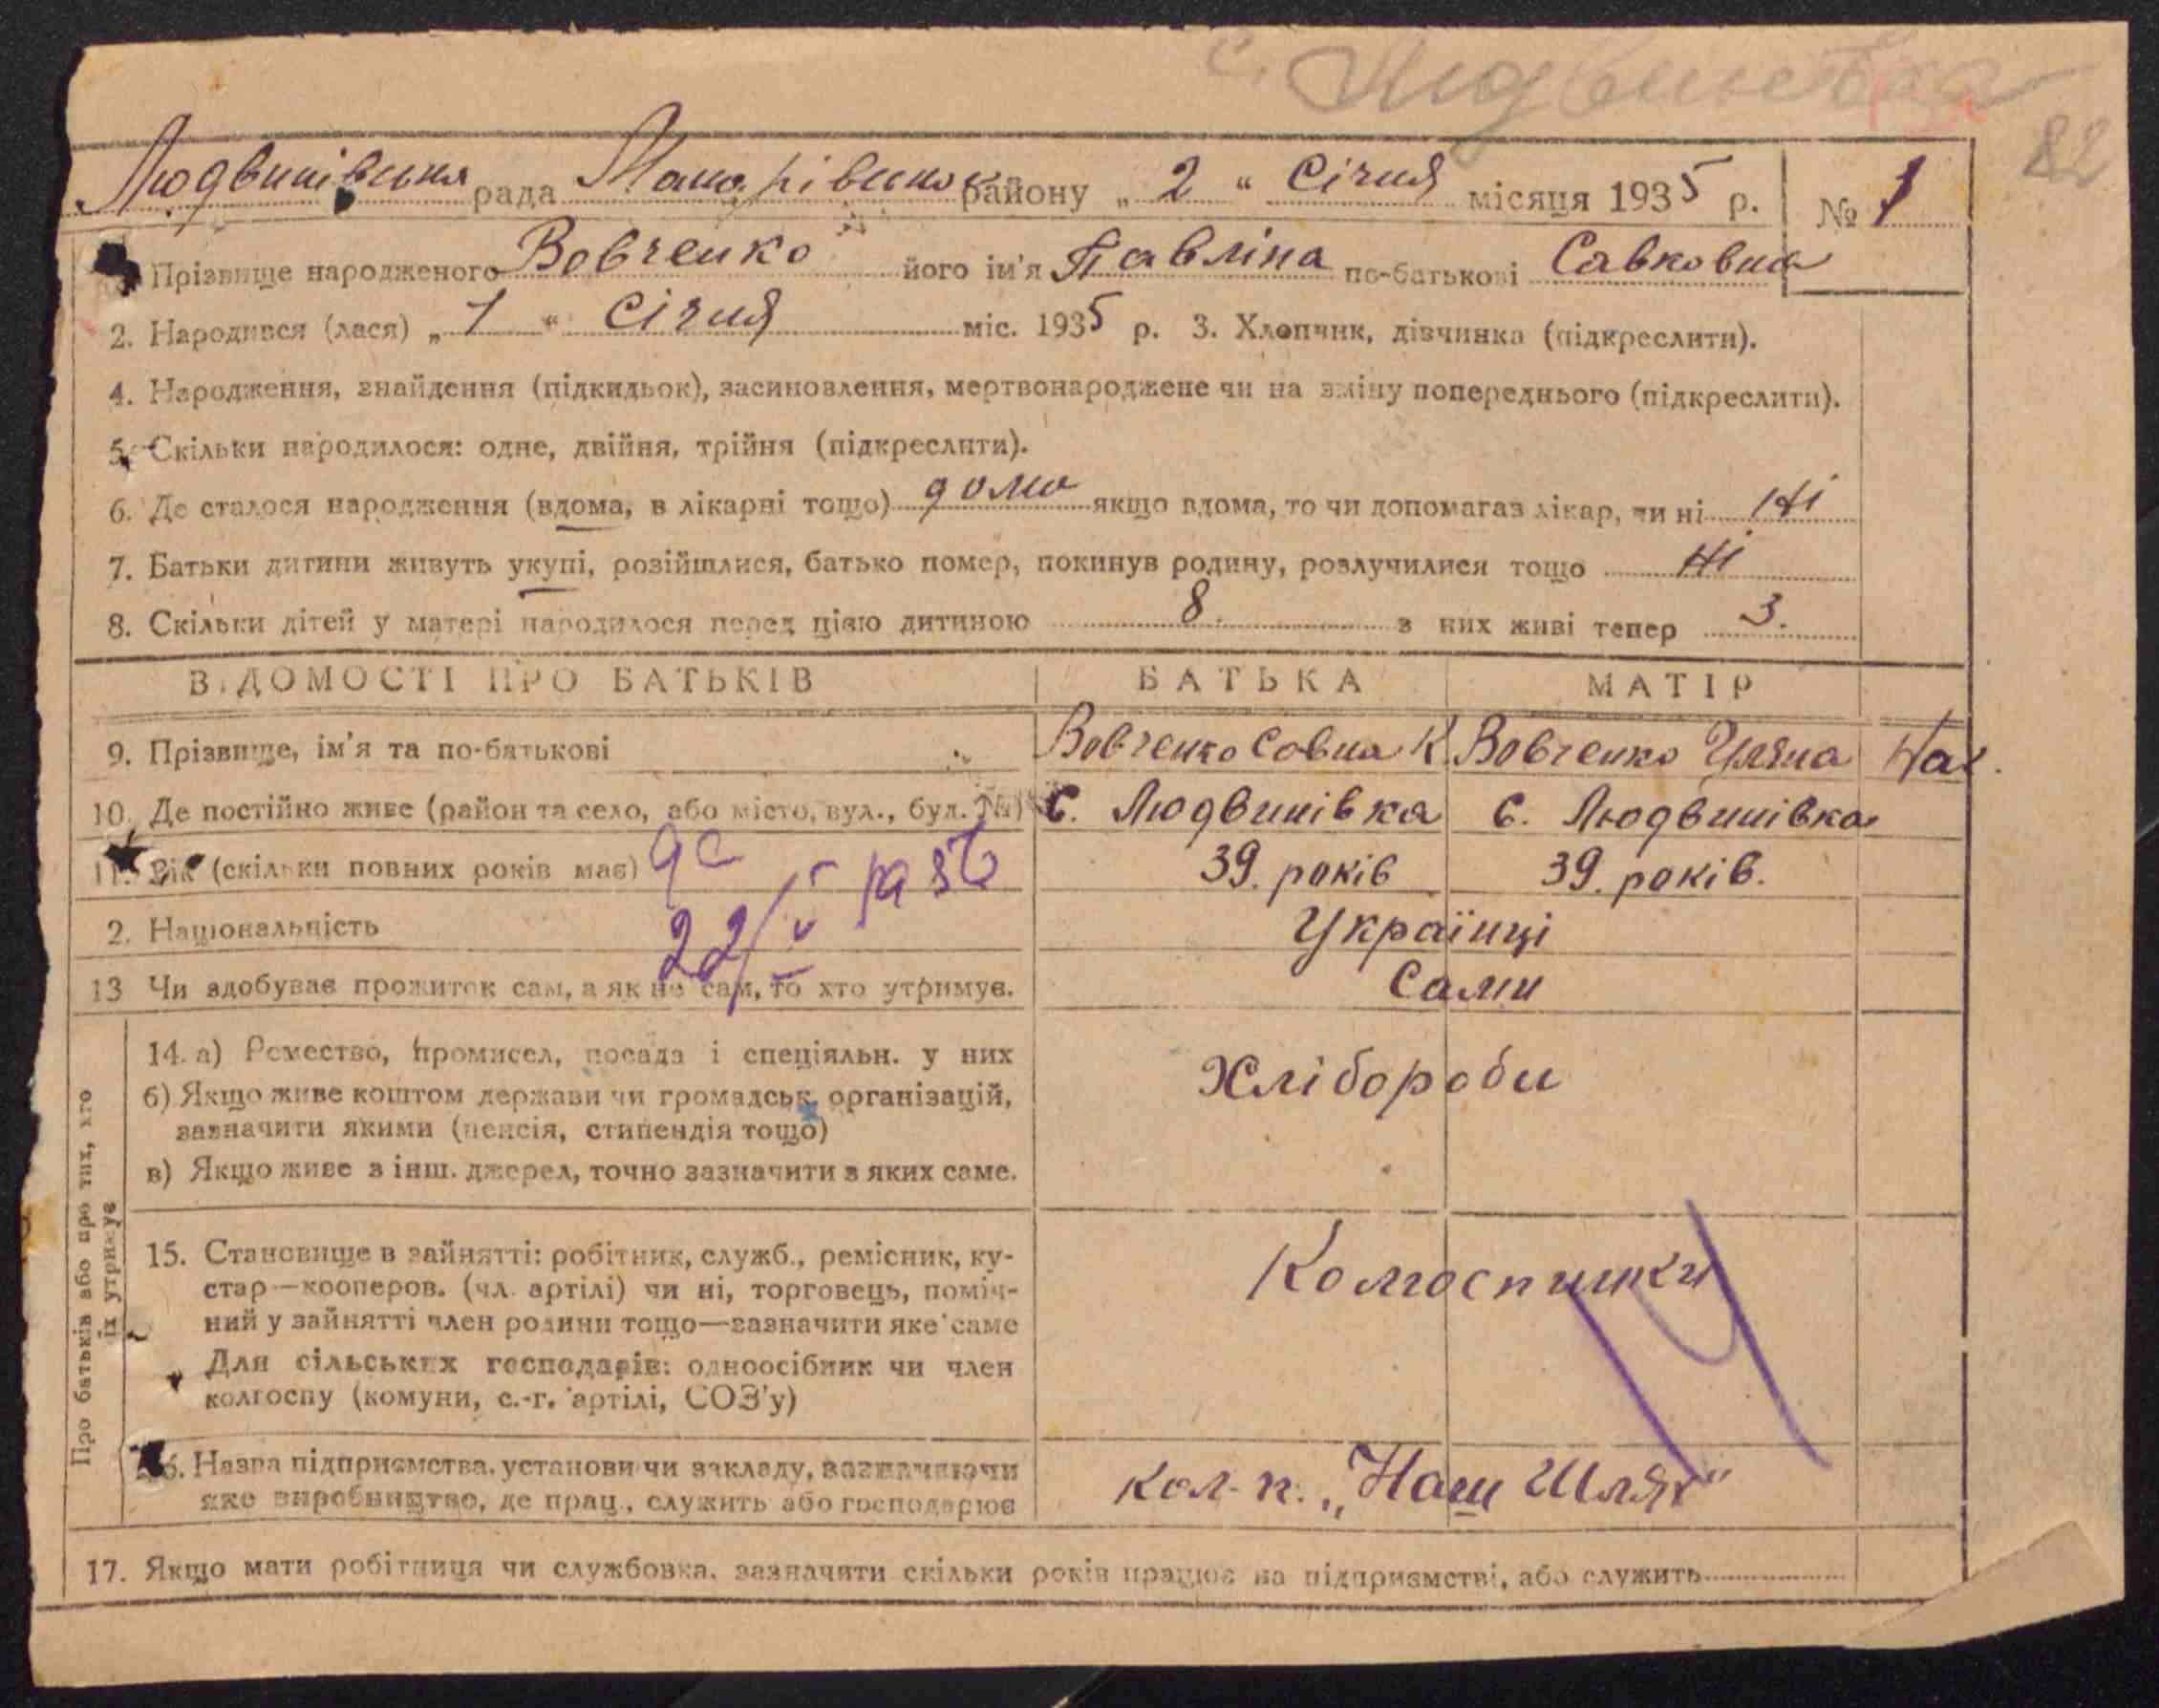 с. Людвиновка
82
Людвинівська рада Макарівського району „ 2 “ Січня місяця 1935 р. № 1
Прізвище народженого Вовченко його ім'я Павліна по-батькові Савковна
2. Народився (лася) „ 1 “ Січня міс. 1935 р. 3. Хлопчик, дівчинка (підкреслити).
4. Народження, знайдення (підкидьок), засиновлення, мертвонароджене чи на зміну попереднього (підкреслити).
5. Скільки народилося: одне, двійня, трійня (підкреслити).
6. Де сталося народження (вдома, в лікарні тощо) дома якщо вдома, то чи допомагав лікар, чи ні Ні
7. Батьки дитини живуть укупі, розійшлися, батько помер, покинув родину, розлучилися тощо Ні
8. Скільки дітей у матері народилося перед цією дитиною 8. з них живі тепер 3.
ВІДОМОСТІ ПРО БАТЬКІВ БАТЬКА МАТІР
9. Прізвище, ім'я та по-батькові Вовченко Совка К. Вовченко Уляна Нах.
10. Де постійно живе (район та село, або місто, вул., буд. №) С. Людвинівка С. Людвинівка
11. Вік (скільки повних років має) 39. років 39. років.
2. Національність 22/V Українці
13 Чи здобуває прожиток сам, а як не сам, то хто утримує. Сами
Про батьків або про тих, хто їх утримує
14. а) Ремество, промисел, посада і спеціяльн. у них Хлібороби
б) Якщо живе коштом держави чи громадськ. організацій,
зазначити якими (пенсія, стипендія тощо)
в) Якщо живе з інш. джерел, точно зазначити з яких саме.
15. Становище в зайнятті: робітник, служб., ремісник, ку-
стар—кооперов. (чл. артілі) чи ні, торговець, поміч- Колгоспники
ний у зайнятті член родини тощо—зазначити яке саме
Для сільських господарів: одноосібник чи член
колгоспу (комуни, с.-г. артілі, СОЗ'у)
16. Назва підприємства, установи чи закладу, зазначаючи
яке виробництво, де прац., служить або господарює Кол-п. „Наш Шлях"
17. Якщо мати робітниця чи службовка, зазначити скільки років працює на підприємстві, або служить